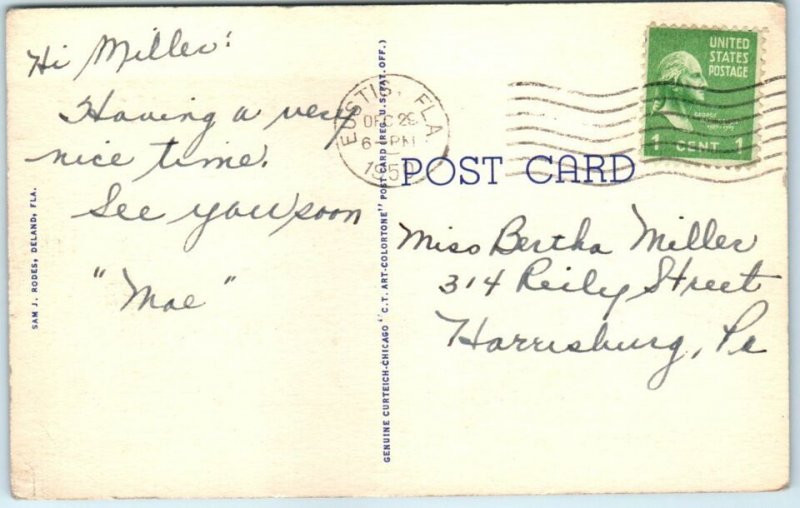 Hi Miller:
Having a very
nice time.
See you soon
"Mae"
SAM J. RODES, DELAND, FLA.
GENUINE CURTEICH-CHICAGO "C.T. ART-COLORTONE" POST CARD (REG. U.S. PAT. OFF.)
EUSTIS, FLA.
DEC 28
6 - PM
POST CARD
UNITED
STATES
POSTAGE
GEORGE
1 CENT 1
Miss Bertha Miller
314 Reily Street
Harrisburg, Pa